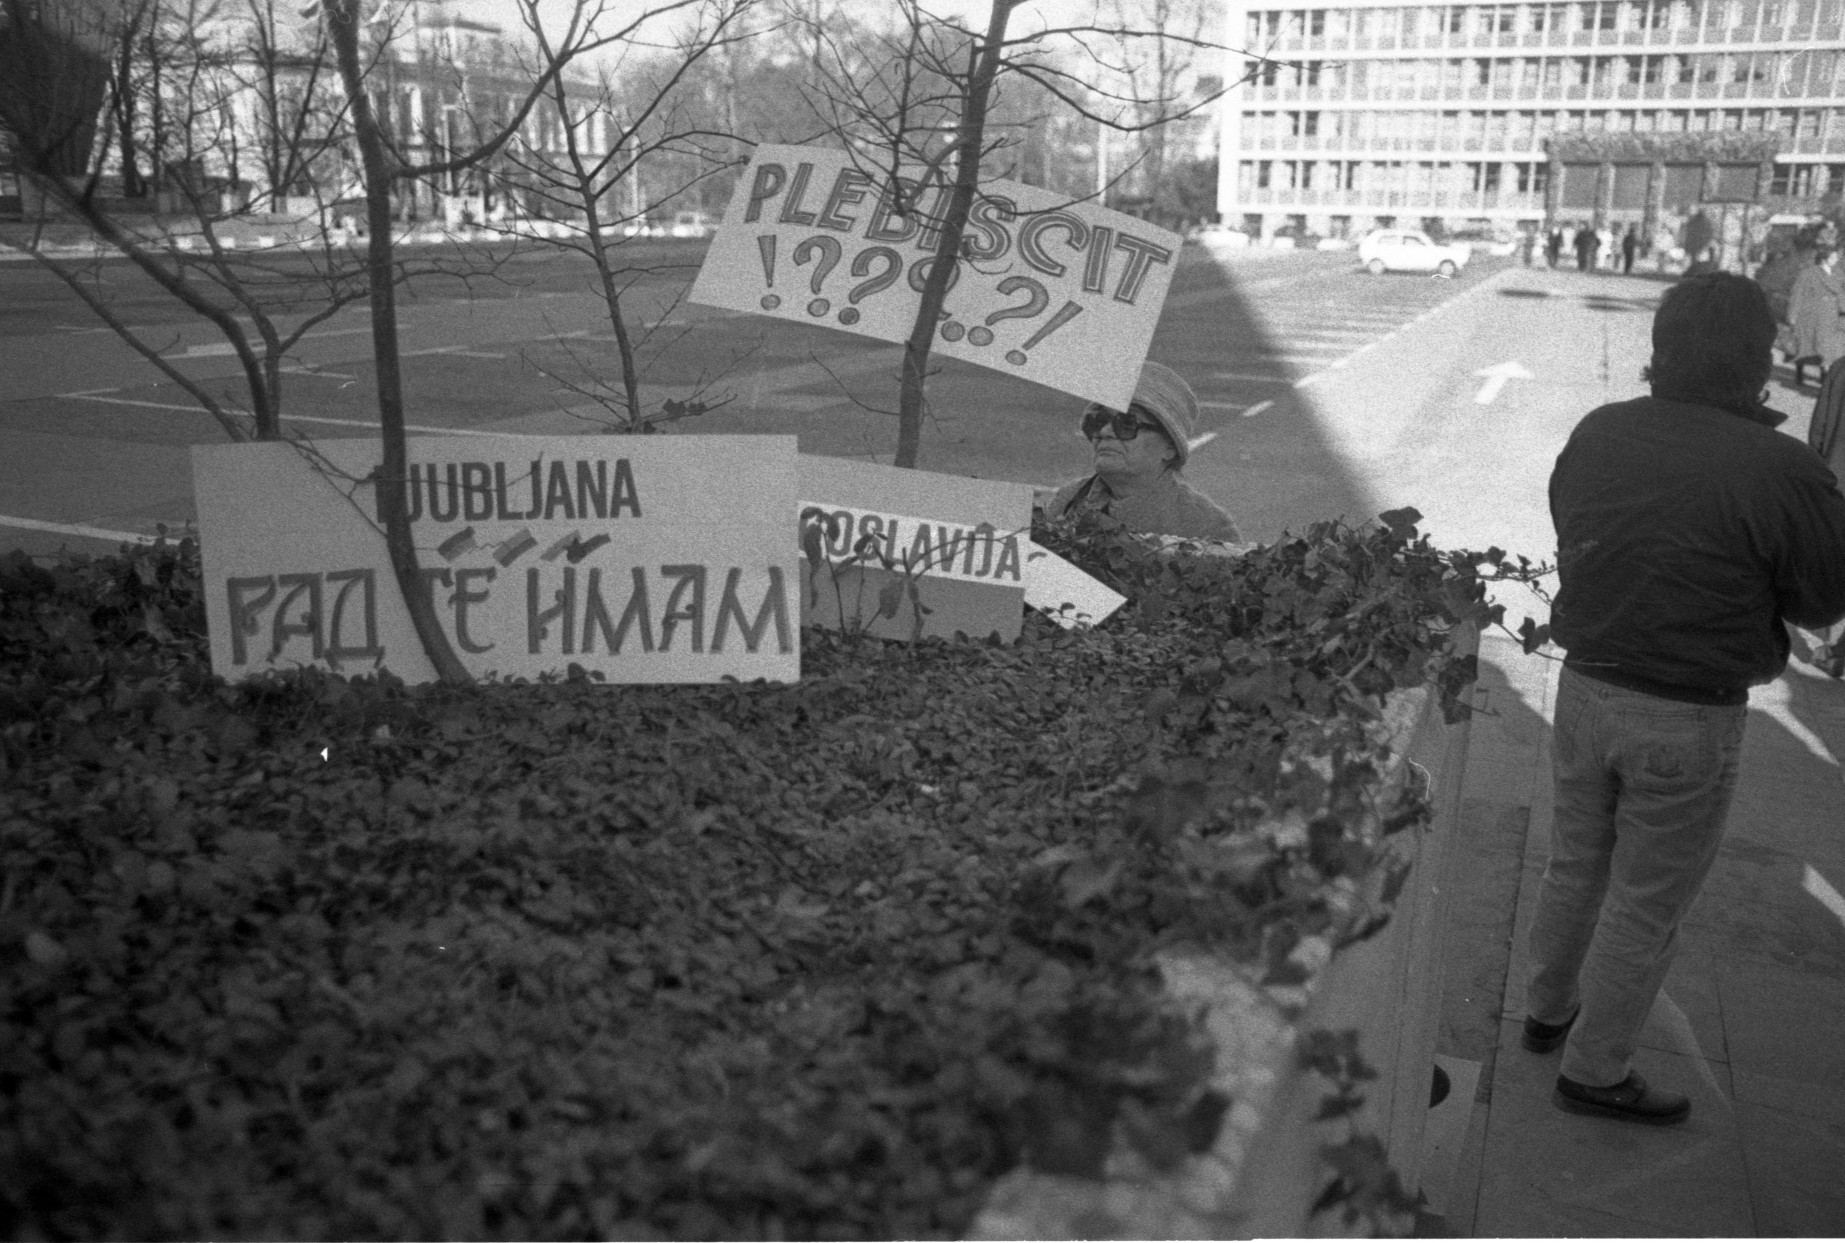 PLEBISCIT
!???..?!
LJUBLJANA
РАД ТЕ ИМАМ
GOSLAVIJA